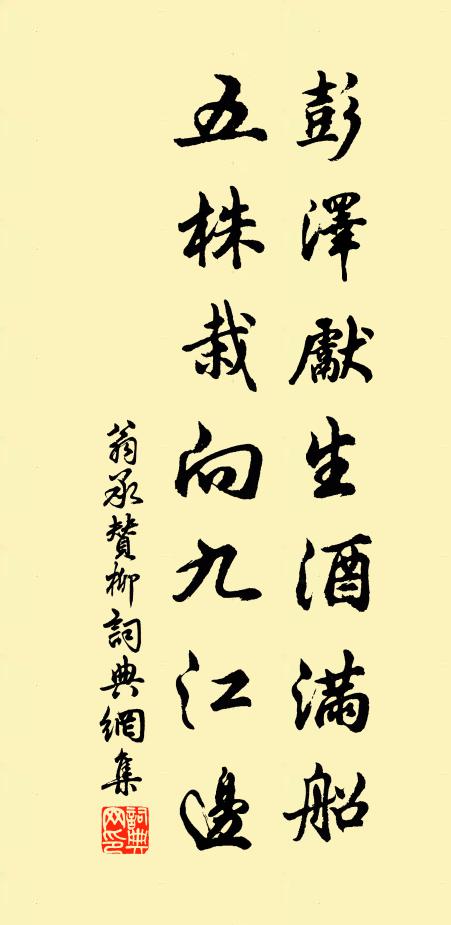 彭澤獻生酒滿船
五株栽向九江邊
翁承贊柳詞典網集
詞典网印